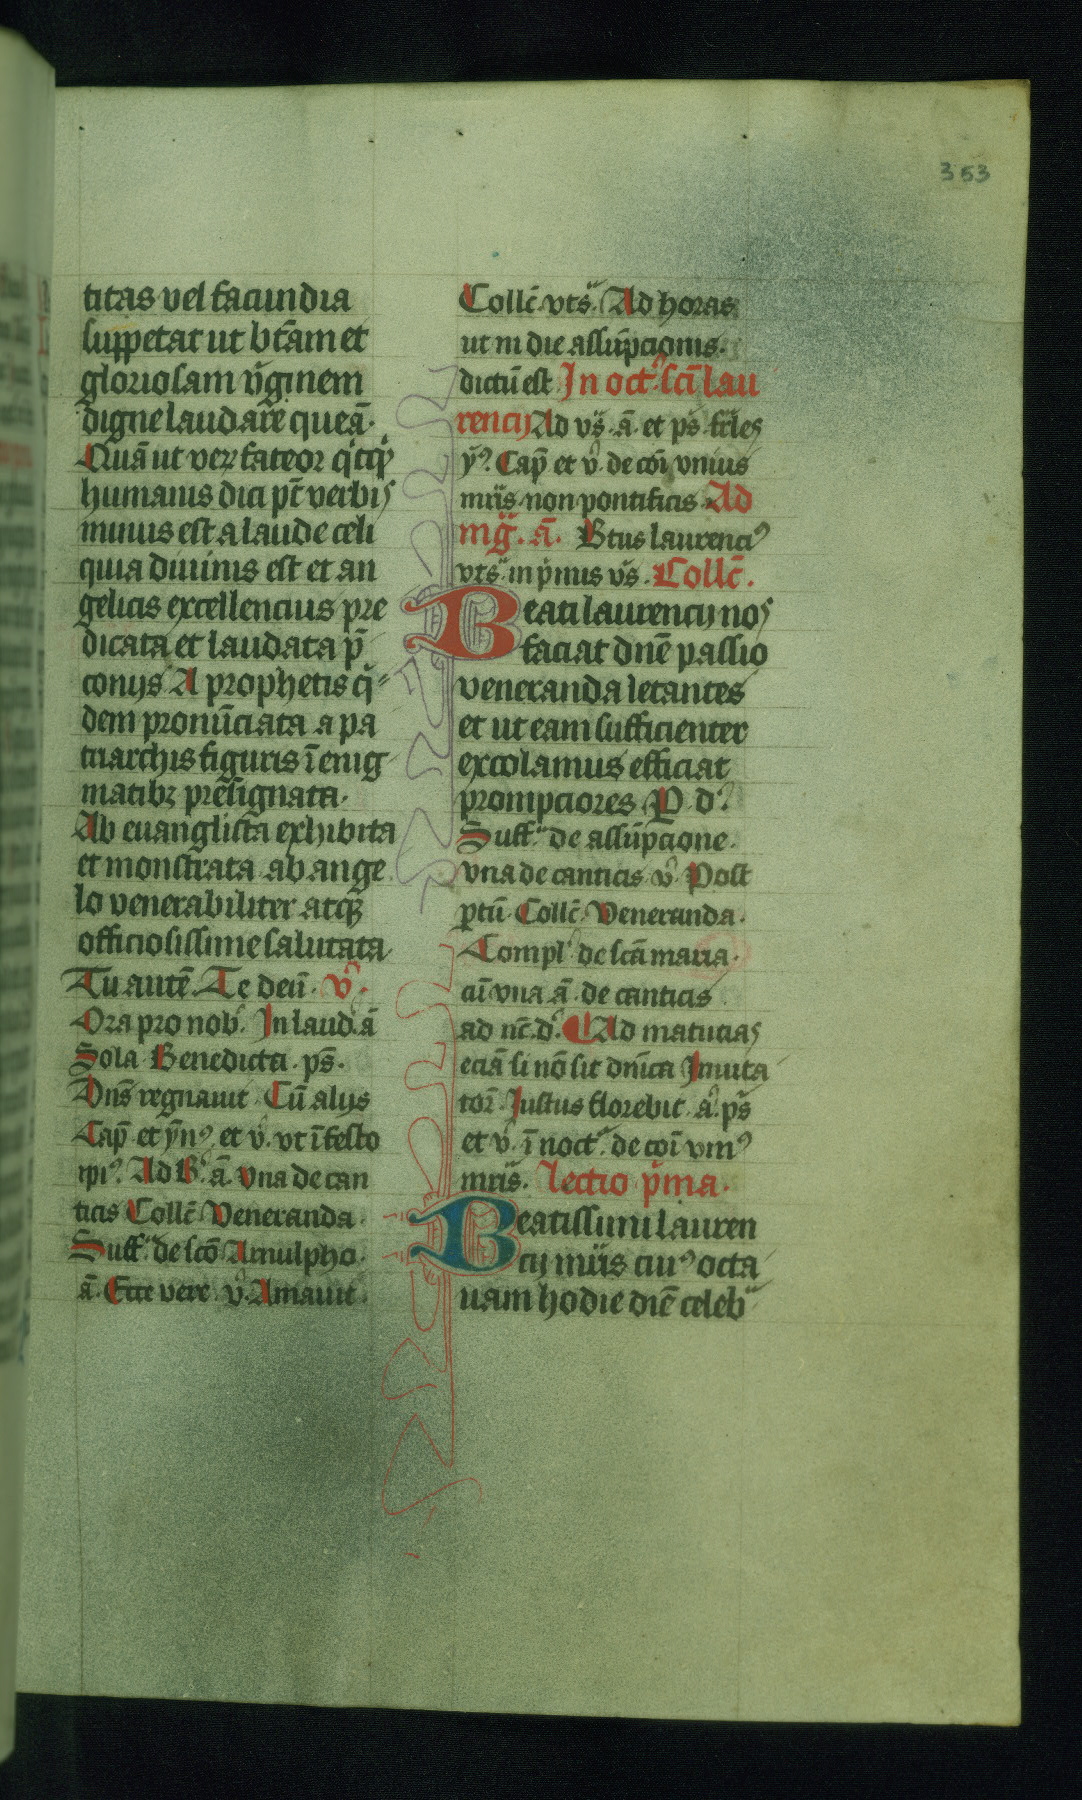 353
titas vel facundia
suppetat ut btām et
gloriosam v̄ginem
digne laudar̄e queā·
Quā ut veꝝ fateor q̇cq̇
humanis dici pt̄ verbis
minus est a laude celi
quia diuinis est et an
gelicis excellencius pre
dicata et laudata p̄
conijs A prophetis q̇
dem pronūciata a pa
triarchis figuris ī enig
matibꝫ pre̅signata·
Ab euanglista exhibita
et monstrata ab ange
lo venerabiliter atqꝫ
officiosissime salutata·
Tu autē· Te deū· v̊·
Ora pro nob̾· In laud̾ ā
Sola Benedicta· ps̄·
Dn̄s regnauit Cū alijs
Cap̄ et ẏnꝰ et v̊· vt ī festo
ipiꝰ· Ad B̾ ā· vna de can
ticis Collc̄ Veneranda·
Suff̾ de scō Arnulpho·
ā· Ecce vere v̊· Amauit·
Collc̄ vts̾· Ad horas
ut in die assūpcionis·
dictū est In octꝰ sci̅ lau
rencij Ad vs̾· ā· et ps̄ fr̄les
ẏꝰ· Cap̄ et v̊ de coi̅ vnius
mr̄is non pontificis Ad
mḡ· ā· Btus laurenciꝰ
vts̾ in ṗmis vs̄· Collc̄·
Beati laurencij nos
faciat dnē passio
veneranda letantes
et ut eam sufficienter
excolamus efficiat
prompciores P d̾·
Suff̾ de assūpcione·
vna de canticis v̊· Post
ptū· Collc̄ Veneranda·
Compl̾ de scā maria·
cū vna ā· de canticis
ad nc̄· d̾· Ad matutias
eciā si nō sit dn̄ica Inuita
tor̄· Justus florebit· ā· ps̄
et v̊· ī noct̾· de coi̅ vniꝰ
mr̄is· lectio ṗma·
Beatissimi lauren
cij mr̄is ciuꝰ octa
uam hodie diē celeb̾